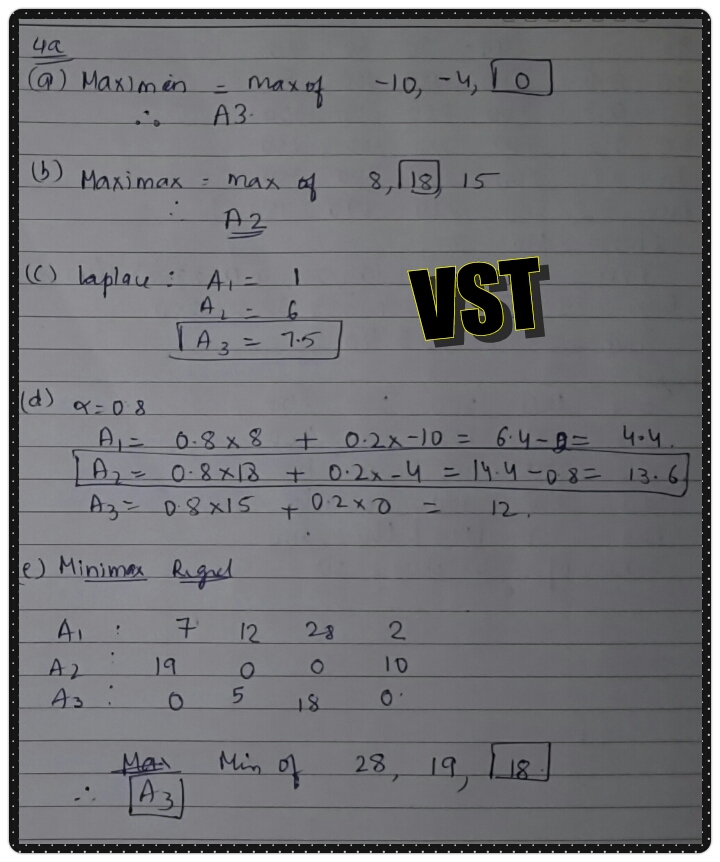 4a
(a) Maximin = max of -10, -4, 0
∴ A3.
(b) Maximax = max of 8, 18, 15
∴ A2
(c) laplace : A1 = 1
A2 = 6
A3 = 7.5
VST
(d) α = 0.8
A1 = 0.8 x 8 + 0.2 x -10 = 6.4 - 2 = 4.4.
A2 = 0.8 x 18 + 0.2 x -4 = 14.4 - 0.8 = 13.6
A3 = 0.8 x 15 + 0.2 x 0 = 12.
e) Minimax Regret
A1 : 7 12 28 2
A2 : 19 0 0 10
A3 : 0 5 18 0.
Max Min of 28, 19, 18.
∴ A3